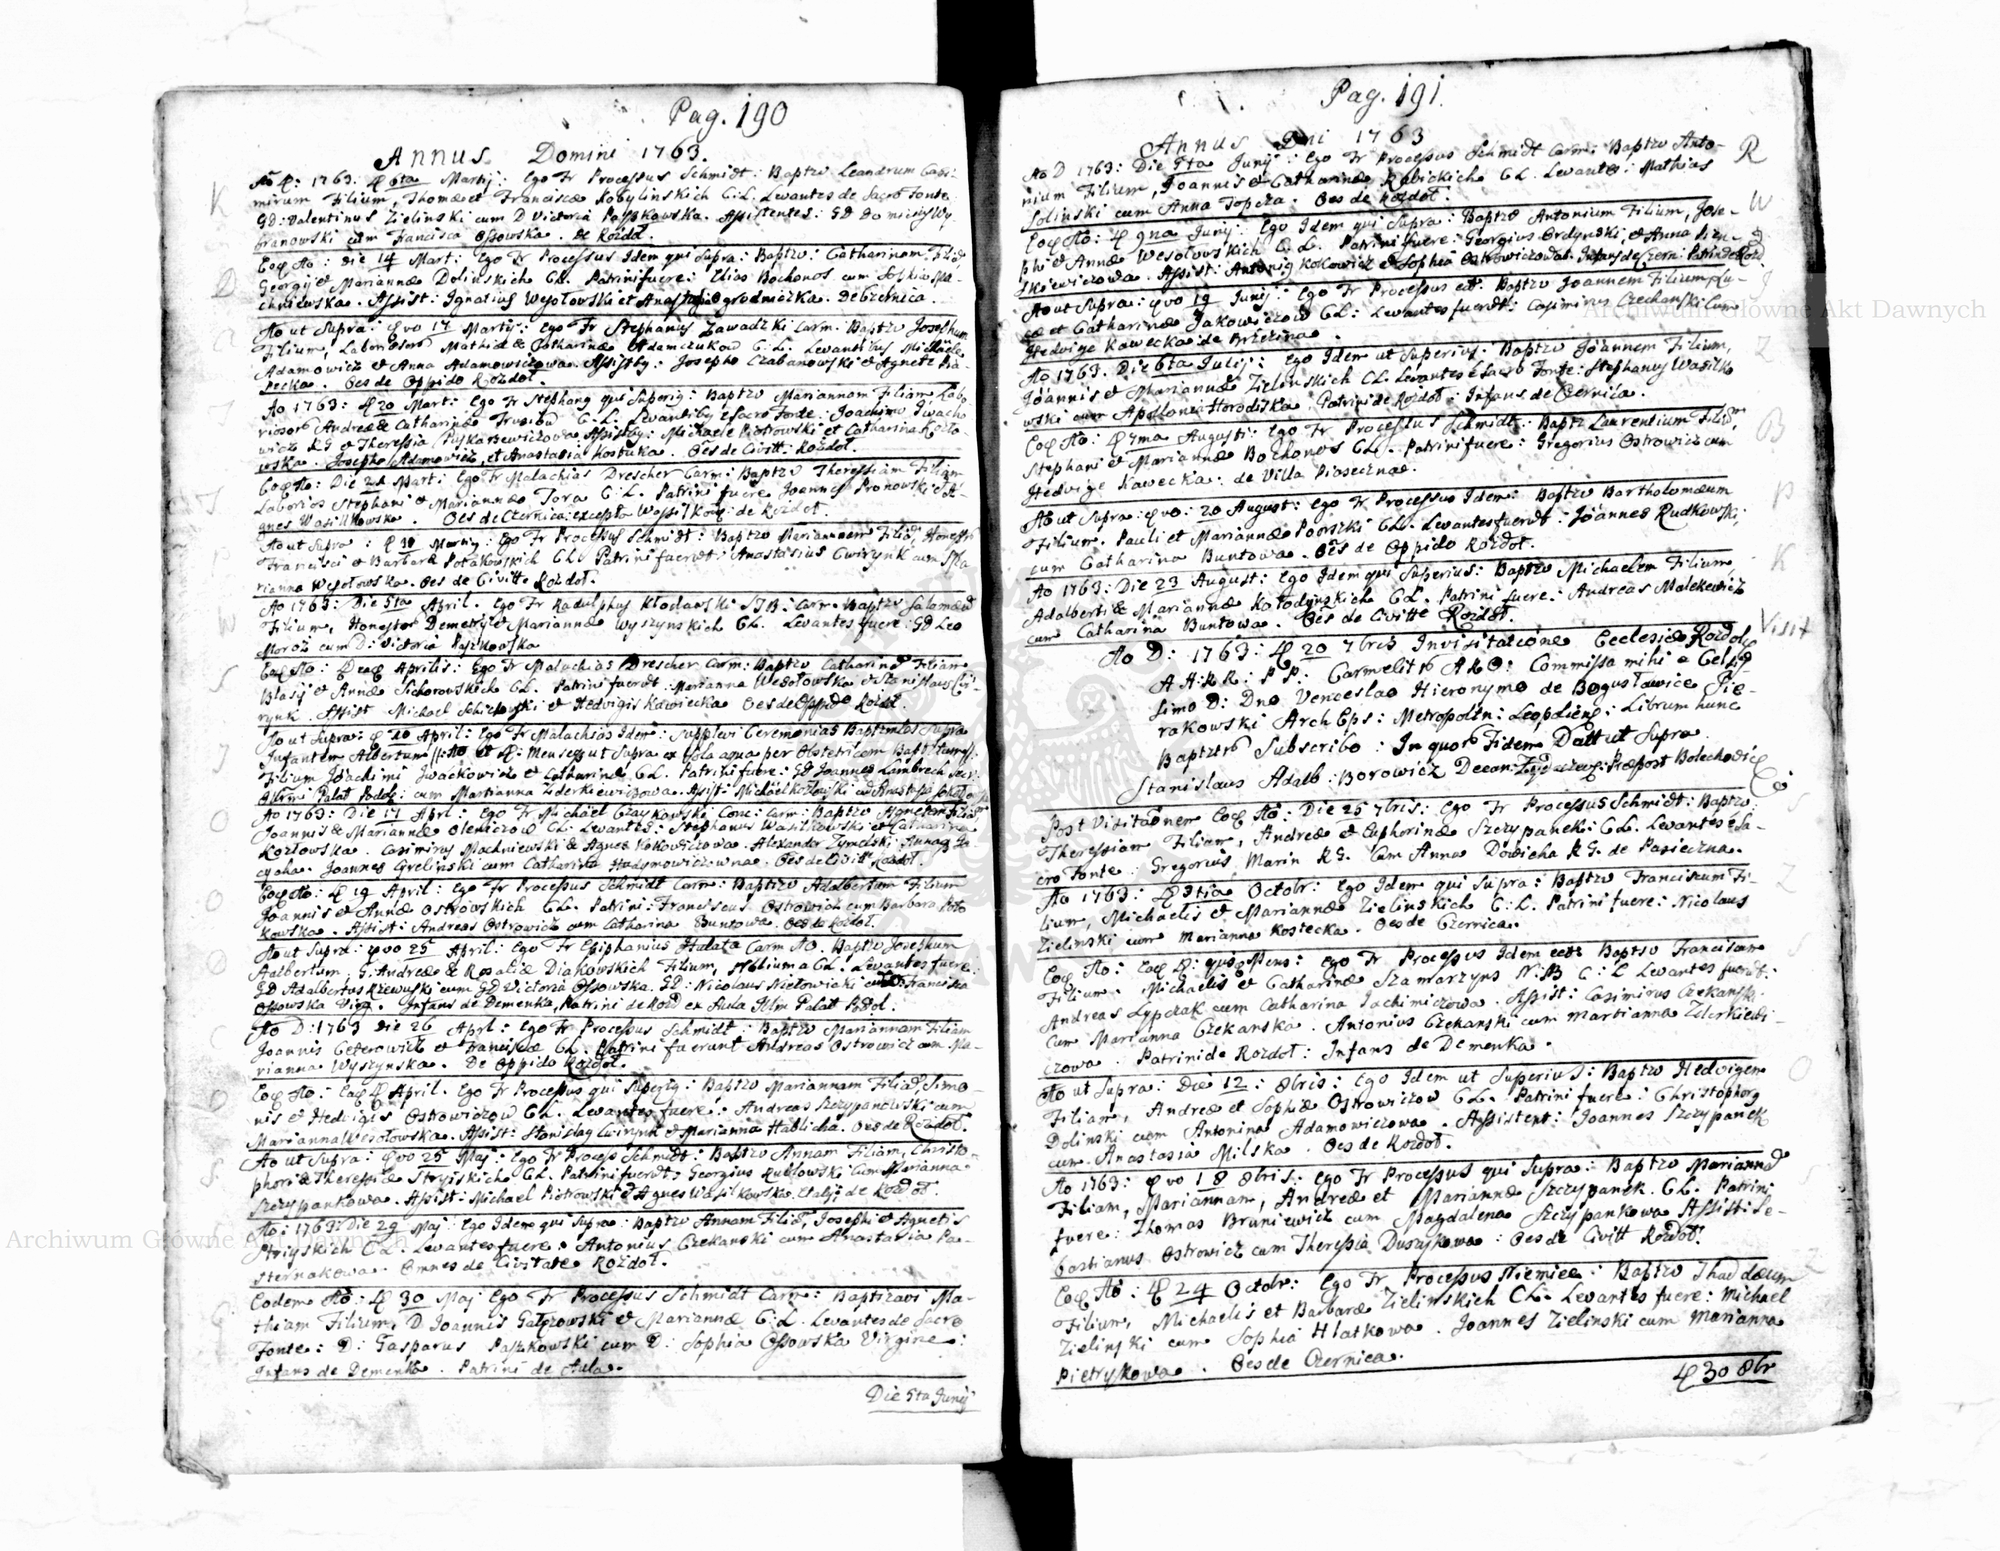 Pag. 190
Annus Domini 1763.
K
Ao D: 1763: D 6ta Martij: Ego Fr Processus Schmidt: Baptzo Leandrum Casi-
mirum Filium, Thomæ et Franciscæ Kobylinskich C:L. Levantes de Sacro Fonte
GD: Valentinus Zielinski cum D Victoria Paszkowska. Assistentes: GD Dominicus Wy-
branowski cum Francisca Ossowska. de Rozdoł.
D
Eoq Ao: Die 14 Mart: Ego Fr Processus Idem qui Supra: Baptzo: Catharinam Filiã
Georgij et Mariannæ Dolinskich CL. Patrini fuere: Elias Bochonos cum Sophia
. Assist: Ignatius Wesołowski et Ogrodniczka. de Czernica.
A
Ao ut Supra: D vo 17 Martij: Ego Fr Stephanus Zawadzki Carm. Baptzo Josephum
Filium, Laboriosorũ Mathiæ & Catharinæ Adamczukow C:L. Levantibus Michaele
Adamowicz et Anna Adamowiczowa. Assistby: Josepho Czabanowski et Agnete
. Oes de Oppido Rozdoł.
T
Ao 1763: D 20 Mart: Ego Fr Stephanus qui Superius: Baptzo Mariannam Filiam Labo-
riosor Andreæ & Catharinæ C:L. Levantiby e Sacro Fonte: Joachimo Iwacho-
wicz RG et Theressia Puskarzewiczowa Assistby: Michaele Piotrowski et Catharina Kozło-
wska. Josepho Adamowicz, et Anastasia Kostuka. Oes de Civitt: Rozdoł.
T
Eoq Ao: Die 21 Mart: Ego Fr Malachias Drescher Carm: Baptzo Theressiam Filiam
Laborios Stephani & Mariannæ Tora C:L. Patrini fuere Joannes Pronowski et A-
gnes Wasilkowska. Oes de Czernica: excepta Wassilkow: de Rozdoł.
P
Ao ut Supra: D 30 Martij: Ego Fr Processus Schmidt: Baptzo Mariannam Filiã, Honestor
Francisci et Barbaræ Potakowskich CL: Patrini fuerũt: Anastasius Cwirynk cum Ma-
rianna Wesołowska. Oes de Civitte Rozdoł.
W
Ao 1763: Die 5ta April. Ego Fr Radulphus Kłocławski STB: Carm. Baptzo Salameã
Filium, Honestor Demetrij et Mariannæ Wyszynskich CL. Levantes fuere: GD Leo
Moroz cum D: Victoria Paszkowska
S
Eoq Ao: D eaq Aprilis: Ego Fr Malachias Drescher Carm: Baptzo Catharinã Filiam
Blasij et Annæ Sichorowskich CL. Patrini fuerũt: Marianna Wesołowska et Stanislaus Cwi-
rynk. Assist Michael et Hedvigis Kawiecka Oes de Oppido Rozdł.
J
Ao ut Supra: D 10 April: Ego Fr Malachias Idem: Supplevi Ceremonias Baptismales Supra
Infantem Albertum ex Sola aqua per Obstetricem Baptizatum:
Filium Joachimi Iwackowicz et Catharinæ CL. Patrini fuere: GD Joannes Lambrech
Illrmi Palat Podol: cum Marianna Ziderkiewiczowa. Assist: Michael Kozłowski
O
Ao 1763: Die 17 Aprl: Ego Fr Michael Czaykowski Conc: Carm: Baptzo Agnetem Filiã
Joannis & Mariannæ Olenczow CL: Levantes: Stephanus Wasilkowski et Catharina
Kozłowska. Casimirus Machniewski & Agnes Kokowiczowa. Alexander Zymelski Anna
. Joannes Grelinski cum Catharina Hadymowiczowna. Oes de Civitt Rozdoł.
O
Eoq Ao: D 19 April: Ego Fr Processus Schmidt Carm: Baptzo Adalbertum Filium
Joannis et Annæ Ostrowskich CL. Patrini: Franciscus Ostrowicz cum Barbara Poto-
kowska. Assist: Andreas Ostrowicz cum Catharina Buntowa. Oes de Rozdoł.
D
Ao ut Supra: D vo 25 April: Ego Fr Epiphanius Halata Carm Ao. Baptzo Josephum
Adalbertum, G: Andreæ & Rosaliæ Diakowskich Filium, Nobilium CL. Levantes fuere:
GD Adalbertus Rzewuski cum GD Victoria Ossowska. GD: Nicolaus Nietowicki cum Francisca
Ossowska Virg. Infans de Demenka, Patrini de Rozd ex Aula Illm Palat Podol.
C
Ao D: 1763 Die 26 Aprl: Ego Fr Processus Schmidt: Baptzo Mariannam Filiam
Joannis Ceterowicz et Franciscæ CL. Patrini fuerunt Andreas Ostrowicz cum Ma-
rianna Wyszynska. De Oppido Rozdoł.
O
Eoq Ao: Eaq D April. Ego Fr Processus qui Superig: Baptzo Mariannam Filiã Simo-
nis et Hedvigis Ostrowiczow CL. Levantes fuere: Andreas Szczypanowski cum
Marianna Wesołowska. Assist: Stanislaus Cwirynk et Marianna Hablicha. Oes de Rozdoł.
S
Ao ut Supra: D vo 25 Maj: Ego Fr Process Schmidt: Baptzo Annam Filiam, Christo-
phori & Theressiæ Stryiskich CL. Patrini fuerũt: Georgius Rutkowski cum Marianna
Szczypankowa. Assist: Michael Piotrowski et Agnes Wasilkowska. de Rozdoł.
S
Ao: 1763: Die 29 Maj: Ego Idem qui Supra: Baptzo Annam Filiã, Josephi et Agnetis
Stryiskich CL. Levantes fuere: Antonius Czekanski cum Anastasia Pa-
sternakowa. Omnes de Civitate Rozdoł.
G
Eodem Ao: D 30 Maj Ego Fr Processus Schmidt Carm: Baptizavi Ma-
thiam Filium, D Joannis Gałęzowski et Mariannæ C:L. Levantes de Sacro
Fonte: D: Gasparus Paszkowski cum D: Sophia Ossowska Virgine:
Infans de Demenka. Patrini de Aula.
Die 5ta Junij
Pag. 191.
Annus Dni 1763
R
Ao D 1763: Die 5ta Junij: Ego Fr Processus Schmidt Carm: Baptzo Anto-
nium Filium, Joannis & Catharinæ Rabickich CL. Levantes: Mathias
Solinski cum Anna Topcza. Oes de Rozdoł.
W
Eoq Ao: D 9na Junij: Ego Idem qui Supra: Baptzo Antonium Filium, Jose-
phi et Annæ Wesołowskich C:L. Patrini fuere: Georgius Ordynski, et Anna Pien-
skiewiczowa. Assist: Antonius Kokowicz et Sophia Ostrowiczowa. Infans de Czerni: Patrini de Rozd.
J
Ao ut Supra: D vo 19 Junij: Ego Fr Processus edt: Baptzo Joannem Filium, Lu-
cæ et Catharinæ Jakowiczow CL: Levantes fuerũt: Casimirus Czechanski cum
Hedvige Kawecka de Brzezina.
Z
Ao 1763. Die 6ta Julij: Ego Idem ut Superius: Baptzo Joannem Filium,
Joannis et Mariannæ Zielenskich CL. Levantes e Sacro Fonte: Stephanus Wasilko-
wski cum Apollonia Horodiska. Patrini de Rozdoł. Infans de Czernica.
B
Eoq Ao: D 7ma Augusti: Ego Fr Processus Schmidt: Baptz Laurentium Filiũ,
Stephani et Mariannæ Bochonos CL. Patrini fuere: Gregorius Ostrowicz cum
Hedvige Kawecka: de Villa Piasecznae.
P
Ao ut Supra: D vo: 20 August: Ego Fr Processus Idem: Baptzo Bartholomæum
Filium. Pauli et Mariannæ Poorszki CL. Levantes fuerũt: Joannes Rudkowski,
cum Catharina Buntowa. Oes de Oppido Rozdoł.
K
Ao 1763: Die 23 August: Ego Idem qui Superius: Baptzo Michaelem Filium,
Adalberti & Mariannæ Kołodynskich CL. Patrini fuere: Andreas Malekewicz
cum Catharina Buntowa. Oes de Civitte Rozdoł.
Visit
Ao D: 1763: D 20 7bris Invisitatione Ecclesiæ Rozdol
AA:RR: PP: Carmelitr A R O: Commissa mihi a Cels-
simo D: Dno Venceslao Hieronymo de Bogusławice Sie-
rakowski Arch Eps: Metropoln: Leopolien: Librum hunc
Baptztr Subscribo: In quor Fidem Datt ut Supra.
Stanislaus Adalb: Borowicz Decan: Præpost Bolechovic
S
Post Visitãonem Eoq Ao: Die 25 7bris: Ego Fr Processus Schmidt: Baptzo:
Theressiam Filiam, Andreæ et Euphorinæ Szczypanek: CL. Levantes e Sa-
cro Fonte: Gregorius Marin RG. Cum Anna Dowicha RG. de Pasieczna.
Z
Ao 1763: D 3tia Octobr: Ego Idem qui Supra: Baptzo Franciscum Fi-
lium, Michaelis et Mariannæ Zielinskich C:L. Patrini fuere: Nicolaus
Zielinski cum Marianna Kostecka. Oes de Czernica.
S
Eoq Ao: Eaq D: quoq Mens: Ego Fr Processus Idem edt: Baptzo Franciscum
Filium. Michaelis et Catharinæ Szamarzyns N:B C:L Levantes fuerũt:
Andreas Lypczak cum Catharina Jachimiczowa. Assist: Casimirus Czekanski
Cum Marianna Czekanska. Antonius Czekanski cum Martianna Zderkiewi-
czowa. Patrini de Rozdoł: Infans de Demenka.
O
Ao ut Supra: Die 12: 8bris: Ego Idem ut Superius: Baptzo Hedvigem
Filiam, Andreæ et Sophiæ Ostrowiczow CL. Patrini fuere: Christophorg
Dolinski cum Antonina Adamowiczowa. Assistent: Joannes Szczypanek
cum Anastasia Milska. Oes de Rozdoł.
S
Ao 1763: D vo 18 8bris: Ego Fr Processus qui Supra: Baptzo Mariannã
Filiam, Mariannam, Andreæ et Mariannæ Szczypanek. CL. Patrini
fuere: Thomas Bruniewicz cum Magdalena Szczypankowa Assist: Se-
bastianus Ostrowicz cum Theressia Duszykowa: Oes de Civitt Rozdoł.
Z
Eoq Ao: D 24 Octobr: Ego Fr Processus Niemiec: Baptzo Thaddæum
Filium, Michaelis et Barbaræ Zielinskich CL. Levantes fuere: Michael
Zielinski cum Sophia Hlatkowa. Joannes Zielinski cum Marianna
Pietryskowa. Oes de Czernica.
D 30 8br
Archiwum Główne Akt Dawnych
Archiwum Główne Akt Dawnych